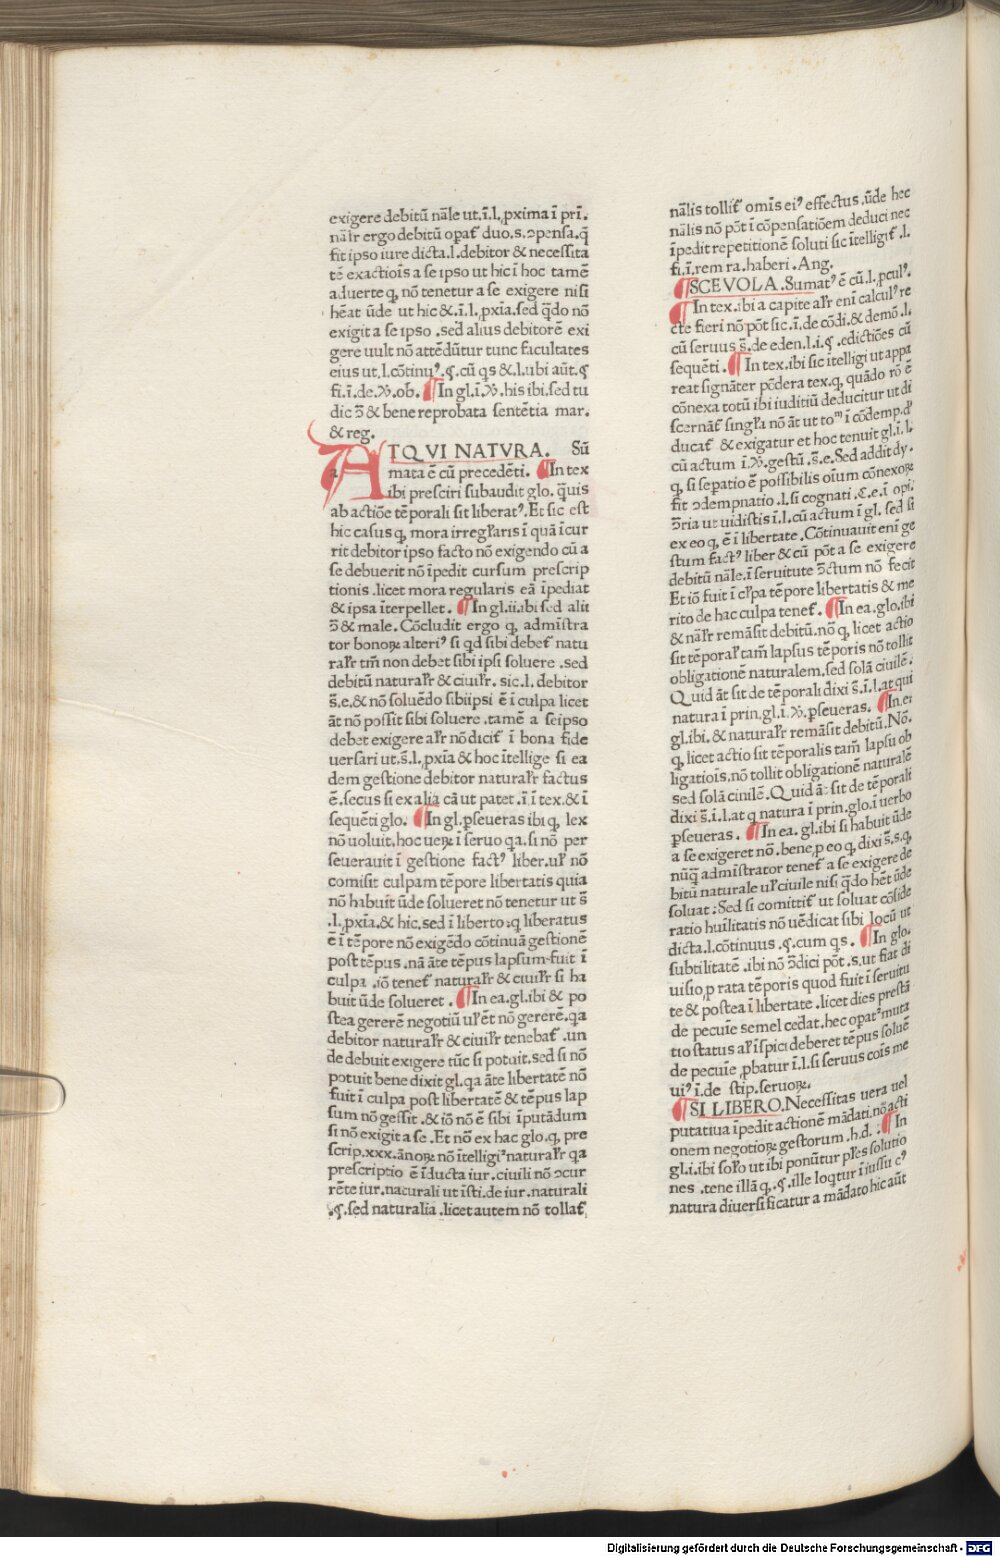 exigere debitū nāle ut.ī.l.ꝓxima ī pri.
nāɫr ergo debitū opaſ duo.s.ↄpensa.q̄
fit ipso iure dicta.l.debitor & necessita
tē exactiois a se ipso ut hic ī hoc tamē
aduerte ꝙ nō tenetur a se exigere nisi
hēat ūde ut hic &.ī.l.ꝓxīa.sed q̄do nō
exigit a se ipso .sed alius debitorē exi
gere uult nō attēdūtur tunc facultates
eius ut.l.cōtinuꝰ.§.cū qs & l.ubi aūt.§
fi.ī.de.
&reg.
ATQVI NATVRA. Sū
mata ē cū precedēti. ¶In tex
ibi presciri subaudit glo. q̄uis
ab actiōe tēporali sit liberatꝰ.Et sic est
hic casus ꝙ mora irregɫaris ī quā īcur
rit debitor ipso facto nō exigendo cū a
se debuerit nō īpedit cursum prescrip
tionis .licet mora regularis eā īpediat
& ipsa īterpellet. ¶In gl.ii.ibi sed alit
& male. Cōcludit ergo ꝙ admīstra
tor bonoꝝ alteriꝰ si qd sibi debeſ natu
raɫr tm̄ non debet sibi ipsi soluere .sed
debitū naturaɫr & ciuiɫr. sic.l.debitor
s̄.e.& nō soluēdo sibiipsi ē ī culpa licet
āt nō possit sibi soluere .tamē a seipso
debet exigere aɫr nō diciſ ī bona fide
uersari ut.s̄.l.ꝓxīa & hoc ītellige si ea
dem gestione debitor naturaɫr factus
ē.secus si ex alia cā ut patet .ī.ī tex.& ī
sequēti glo. ¶In gl.ꝑseueras ibi ꝙ lex
nō uoluit.hoc ueꝝ ī seruo qa.si nō per
seuerauit ī gestione factꝰ liber.uɫ nō
comisit culpam tēpore libertatis quia
nō habuit ūde solueret nō tenetur ut s̄
.l.ꝓxīa.& hic.sed ī liberto:q liberatus
ē ī tēpore nō exigēdo cōtinuā gestionē
post tēpus .nā āte tēpus lapsum fuit ī
culpa .iō teneſ naturaɫr & ciuiɫr si ha
buit ūde solueret . ¶In ea.gl.ibi & po
stea gererē negotiū uɫ ēt nō gererē.qa
debitor naturaɫr & ciuiɫr tenebaſ .un
de debuit exigere tūc si potuit.sed si nō
potuit bene dixit gl.qa āte libertatē nō
fuit ī culpa post libertatē & tēpus lap
sum nō gessit .& iō nō ē sibi īputādum
si nō exigit a se .Et nō ex hac glo.ꝙ pre
scrip.xxx.ānoꝝ nō ītelligiꝰ naturaɫr qa
prescriptio ē īducta iur.ciuili nō ↄcur
rēte iur.naturali ut īsti.de iur.naturali
.§.sed naturalia .licet autem nō tollaſ
nālis tolliſ omīs eiꝰ effectus .ūde hec
nālis nō pōt ī cōpensatiōem deduci nec
īpedit repetitionē soluti sic ītelligiſ .l.
fi.ī.rem ra.haberi .Ang.
¶SCEVOLA .Sumatꝰ ē cū.l.ꝓculꝰ.
¶In tex.ibi a capite aɫr eni calculꝰ re
cte fieri nō pōt sic.ī.de cōdi.& demō.l.
cū seruus s̄.de eden.l.i.§.edictiōes cū
sequēti . ¶In tex.ibi sic ītelligi ut appa
reat signāter pōdera tex.ꝙ quādo rō ē
cōnexa totū ibi iuditiū deducitur ut di
scernaſ singɫa nō āt ut totū ī cōdemp.
ducaſ & exigatur et hoc tenuit gl.ī.l.
cū actum gestū.s̄.e.Sed addit dy.
ꝙ si sepatio ē possibilis oīum cōnexoꝝ
fit ↄdempnatio .l.si cognati .C.e.ī opi.
ↄ̄ria ut uidistis ī.l.cū actum ī gl. sed si
ex eo ꝙ ē ī libertate .Cōtinuauit enī ge
stum factꝰ liber & cū pōt a se exigere
debitū nāle.ī seruitute nō fecit
Et iō fuit ī cɫpa tēpore libertatis & me
rito de hac culpa teneſ. ¶In ea.glo.ibi
& nāɫr remāsit debitū.nō ꝙ licet actio
sit tēporaɫ tam̄ lapsus tēporis nō tollit
obligationē naturalem.sed solā ciuilē.
Quid āt sit de tēporali dixi s̄.ī.l.at qui
natura ī prin.gl.i. ꝑseueras. ¶In ea
gl.ibi.& naturaɫr remāsit debitū.Nō.
ꝙ licet actio sit tēporalis tam̄ lapsu ob
ligatiois.nō tollit obligationē naturalē
sed solā cinilē .Quid ā: sit de tēporali
dixi s̄.ī.l.at q natura ī prin.glo.ī uerbo
ꝑseueras . ¶In ea.gl.ibi si habuit ūde
a se exigeret nō .bene.ꝓ eo ꝙ dixi s̄.s.ꝙ
nūq̄ admīstrator teneſ a se exigere de
bitū naturale uɫ ciuile nisi q̄do hēt ūde
soluat :Sed si comittiſ ut soluat cōside
ratio huīlitatis nō uēdicat sibi locū ut
dicta.l.cōtinuus .§.cum qs. ¶In glo.
subtilitatē .ibi nō ↄ̄dici pōt .s.ut fiat di
uisio.ꝓ rata tēporis quod fuit ī seruitu
te & postea ī libertate .licet dies prestā
de pecuīe semel cedat.hec opatꝰ muta
tio status aɫ īspici deberet tēpus soluē
de pecuīe .ꝓbatur ī.l.si seruus coīs me
uiꝰ ī.de stip.seruoꝝ.
¶SI LIBERO.Necessitas uera uel
putatiua īpedit actionē mādati.nō acti
onem negotioꝝ gestorum .h.d. . ¶In
gl.i.ibi soɫo ut ibi ponūtur pɫes solutio
nes .tene illā ꝙ.§.ille loqtur ī iussu cꝰ
natura diuersificatur a mādato hic aūt
Digitalisierung gefördert durch die Deutsche Forschungsgemeinschaft - DFG